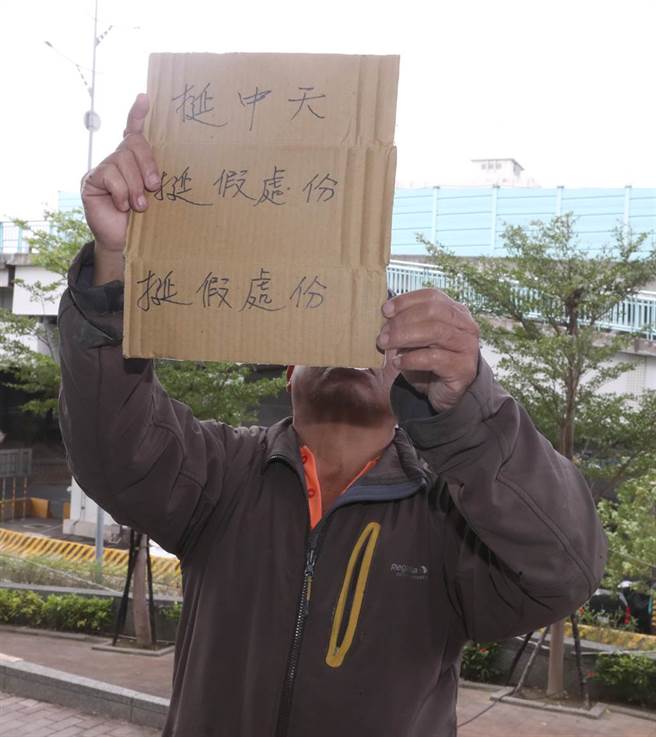 挺中天
挺假處份
挺假處份